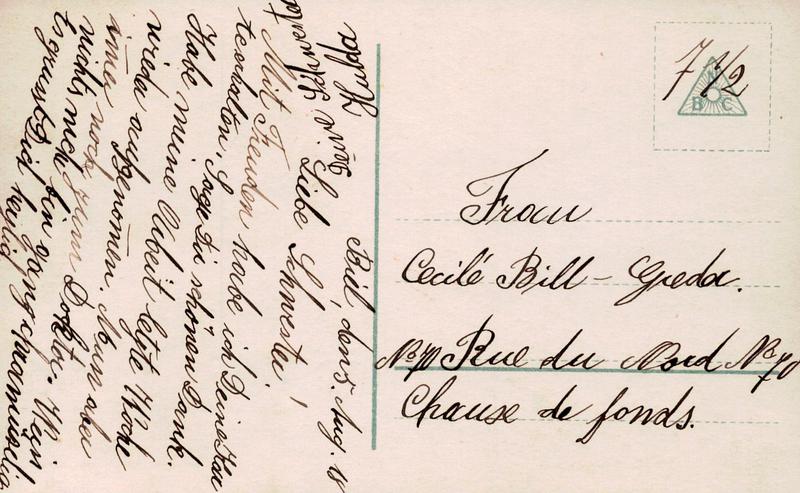 Biel, den 5. Aug. 18
Liebe Schwester!
Mit Freuden habe ich Deine Kar
te erhalten, Sage Dir schönen Dank.
Habe meine Arbeit letzte Woche
wieder aufgenomen. Muss aber
imer noch zum Doktor. Weis
nichts
bin ganz
Es grüsst Dich herzlich
7 1/2
N
B C
Frau
Cecilé Bill - Greda.
No 70 Rue du Nord No 70
Chause de fonds.